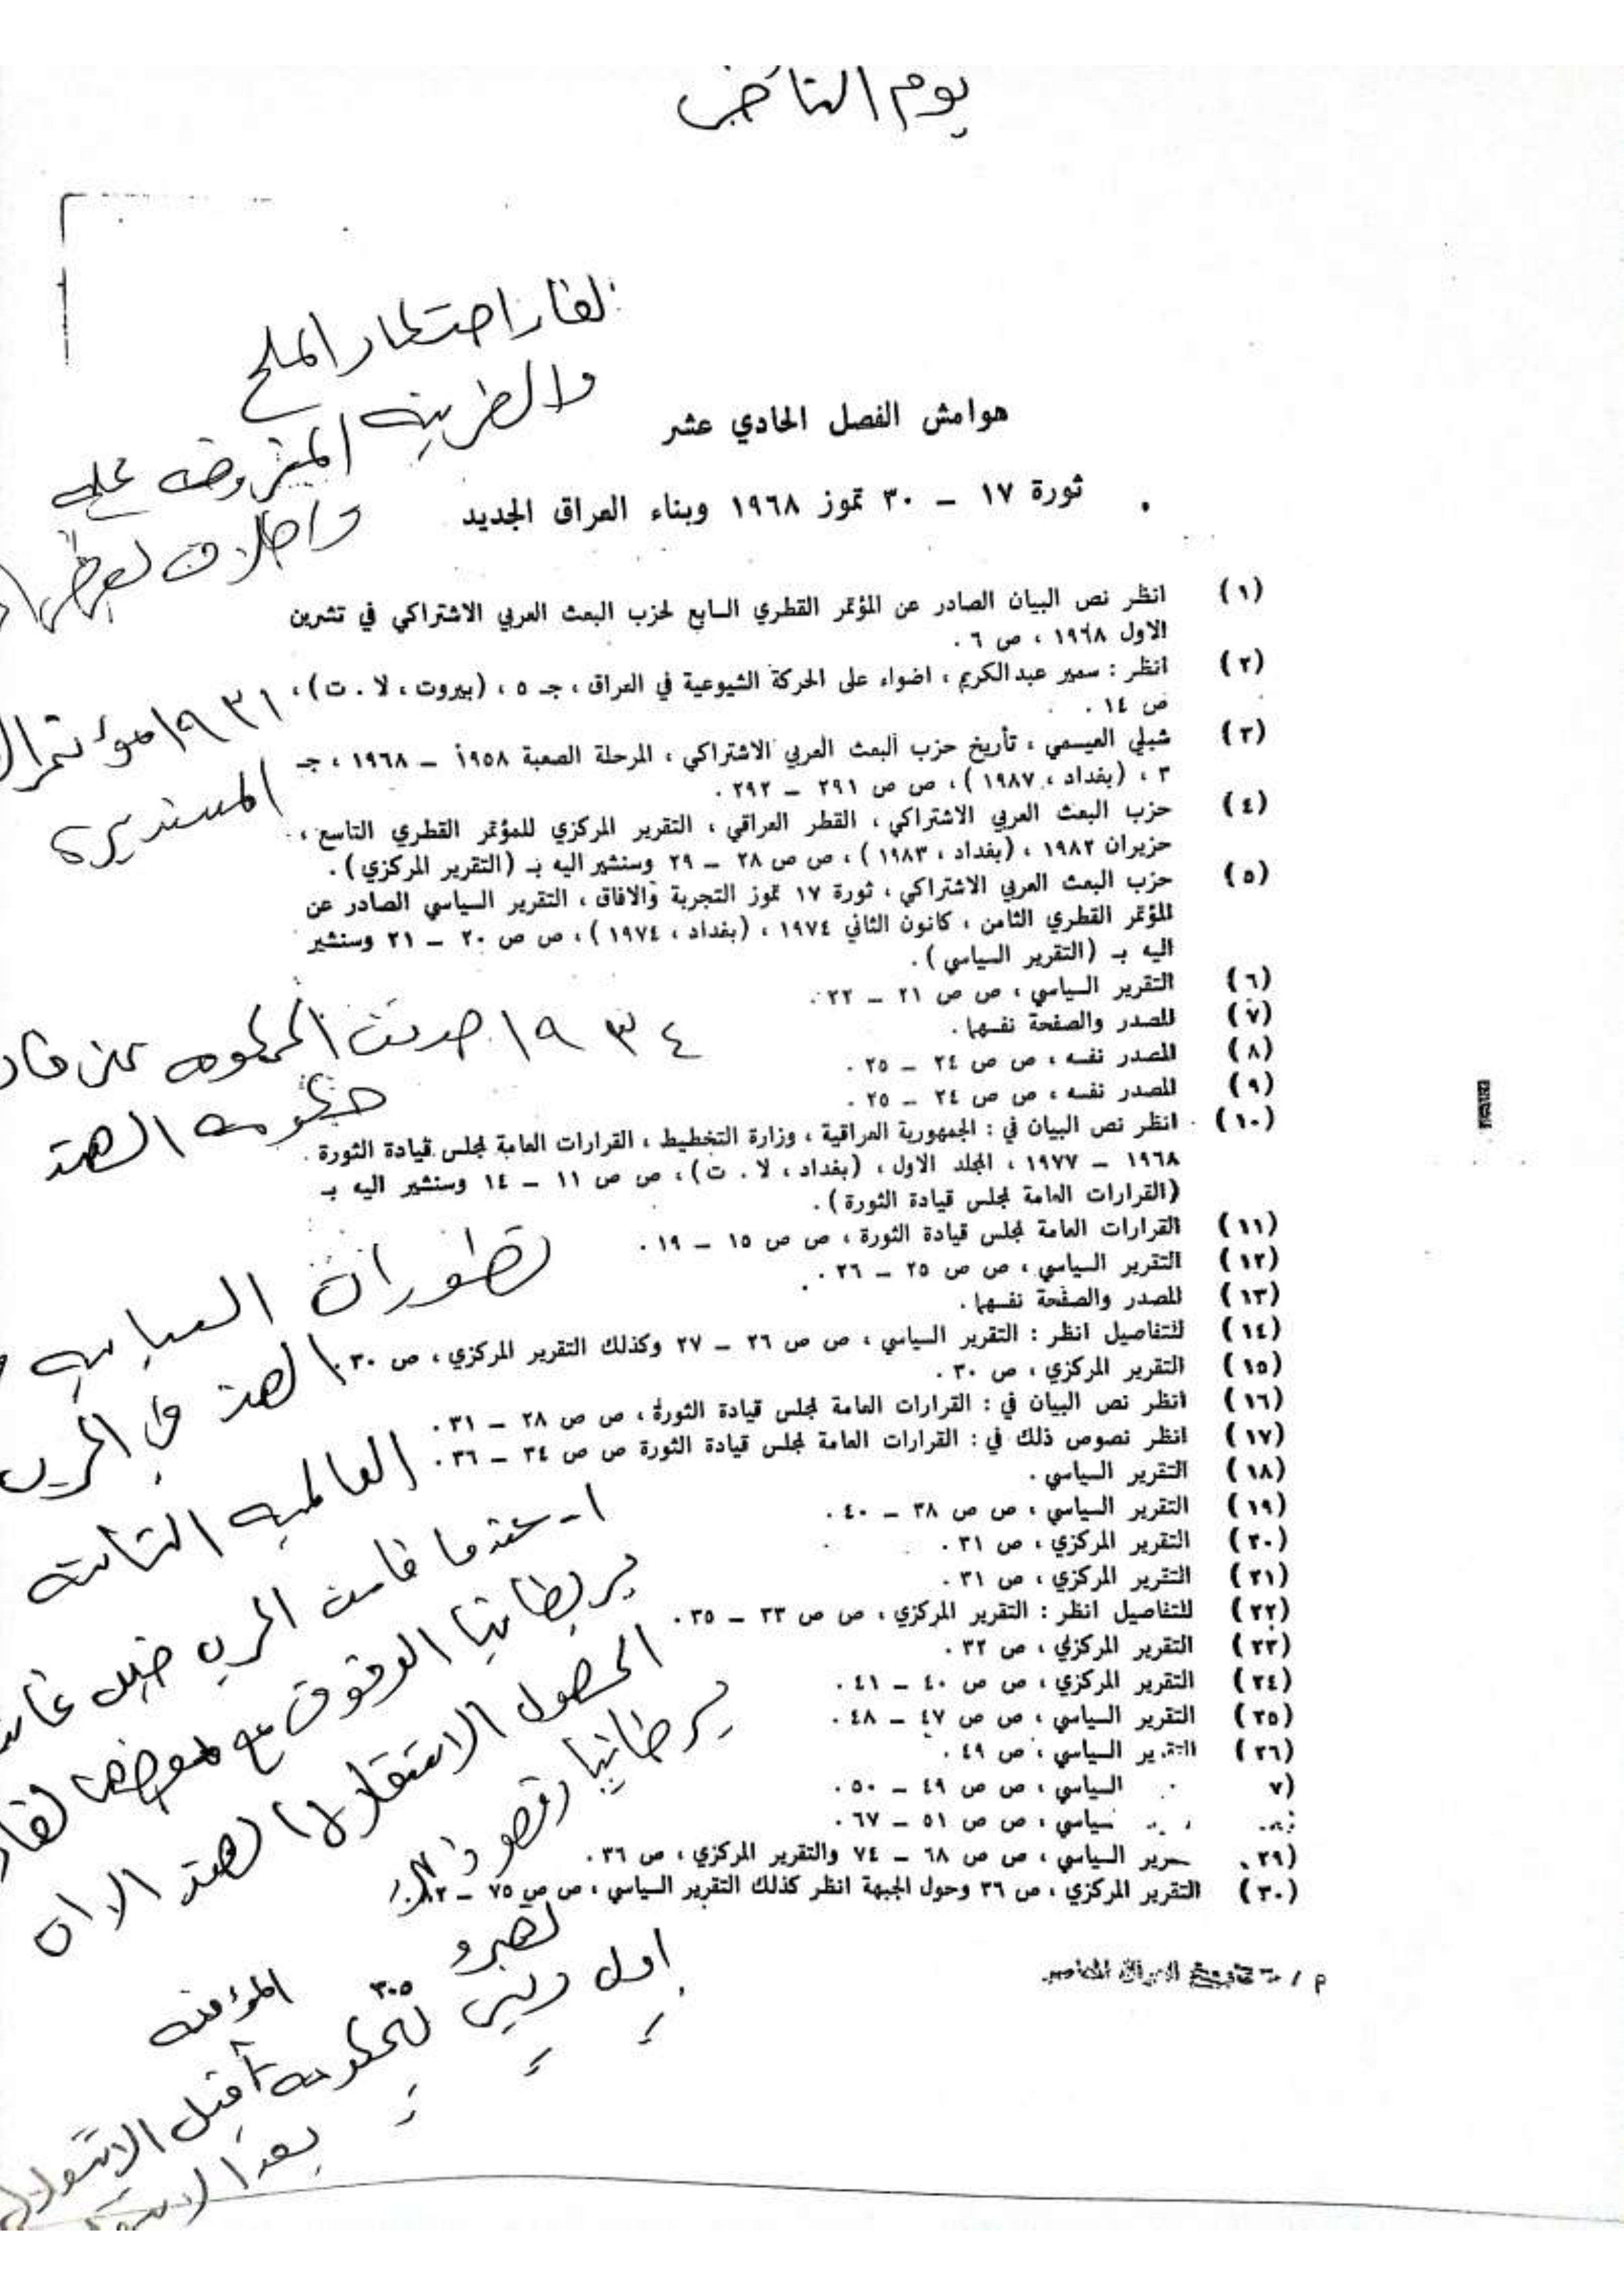 هوامش الفصل الحادي عشر
ثورة ١٧ – ٣٠ تموز ١٩٦٨ وبناء العراق الجديد
(١) انظر نص البيان الصادر عن المؤتمر القطري السابع لحزب البعث العربي الاشتراكي في تشرين
الاول ١٩٦٨ ، ص ٦ .
(٢) انظر : سمير عبدالكريم ، اضواء على الحركة الشيوعية في العراق ، جـ ٥ ، (بيروت ، لا . ت) ،
ص ١٤ .
(٣) شبلي العيسمي ، تأريخ حزب البعث العربي الاشتراكي ، المرحلة الصعبة ١٩٥٨ – ١٩٦٨ ، جـ
٣ ، (بغداد ، ١٩٨٧ ) ، ص ص ٢٩١ – ٢٩٢ .
(٤) حزب البعث العربي الاشتراكي ، القطر العراقي ، التقرير المركزي للمؤتمر القطري التاسع ،
حزيران ١٩٨٢ ، (بغداد ، ١٩٨٣ ) ، ص ص ٢٨ – ٢٩ وسنشير اليه بـ (التقرير المركزي) .
(٥) حزب البعث العربي الاشتراكي ، ثورة ١٧ تموز التجربة والافاق ، التقرير السياسي الصادر عن
المؤتمر القطري الثامن ، كانون الثاني ١٩٧٤ ، (بغداد ، ١٩٧٤ ) ، ص ص ٢٠ – ٢١ وسنشير
اليه بـ (التقرير السياسي) .
(٦) التقرير السياسي ، ص ص ٢١ – ٢٢ .
(٧) المصدر والصفحة نفسها .
(٨) المصدر نفسه ، ص ص ٢٤ – ٢٥ .
(٩) المصدر نفسه ، ص ص ٢٤ – ٢٥ .
(١٠) انظر نص البيان في : الجمهورية العراقية ، وزارة التخطيط ، القرارات العامة لمجلس قيادة الثورة
١٩٦٨ – ١٩٧٧ ، المجلد الاول ، (بغداد ، لا . ت) ، ص ص ١١ – ١٤ وسنشير اليه بـ
(القرارات العامة لمجلس قيادة الثورة) .
(١١) القرارات العامة لمجلس قيادة الثورة ، ص ص ١٥ – ١٩ .
(١٢) التقرير السياسي ، ص ص ٢٥ – ٢٦ .
(١٣) المصدر والصفحة نفسها .
(١٤) للتفاصيل انظر : التقرير السياسي ، ص ص ٢٦ – ٢٧ وكذلك التقرير المركزي ، ص ٣٠ .
(١٥) التقرير المركزي ، ص ٣٠ .
(١٦) انظر نص البيان في : القرارات العامة لمجلس قيادة الثورة ، ص ص ٢٨ – ٣١ .
(١٧) انظر نصوص ذلك في : القرارات العامة لمجلس قيادة الثورة ص ص ٣٤ – ٣٦ .
(١٨) التقرير السياسي .
(١٩) التقرير السياسي ، ص ص ٣٨ – ٤٠ .
(٢٠) التقرير المركزي ، ص ٣١ .
(٢١) التقرير المركزي ، ص ٣١ .
(٢٢) للتفاصيل انظر : التقرير المركزي ، ص ص ٣٣ – ٣٥ .
(٢٣) التقرير المركزي ، ص ٣٢ .
(٢٤) التقرير المركزي ، ص ص ٤٠ – ٤١ .
(٢٥) التقرير السياسي ، ص ص ٤٧ – ٤٨ .
(٢٦) التقرير السياسي ، ص ٤٩ .
السياسي ، ص ص ٤٩ – ٥٠ .
سياسي ، ص ص ٥١ – ٦٧ .
السياسي ، ص ص ٦٨ – ٧٤ والتقرير المركزي ، ص ٣٦ .
(٣٠) التقرير المركزي ، ص ٣٦ وحول الجبهة انظر كذلك التقرير السياسي ، ص ص ٧٥ –
٣٠٥
احتكار الملح
والضريبة المفروضة على
١٩٣١ مؤتمر
المستديرة
١٩٣٤
حكومة الهند
تطورات السياسية
الهند في الحرب
العالمية الثانية
١- عندما قامت الحرب
بريطانيا الوقوف مع
الحصول الاستقلال الهند الا ان
بريطانيا
اول رئيس للحكومة المؤقتة قبل الاستقلال